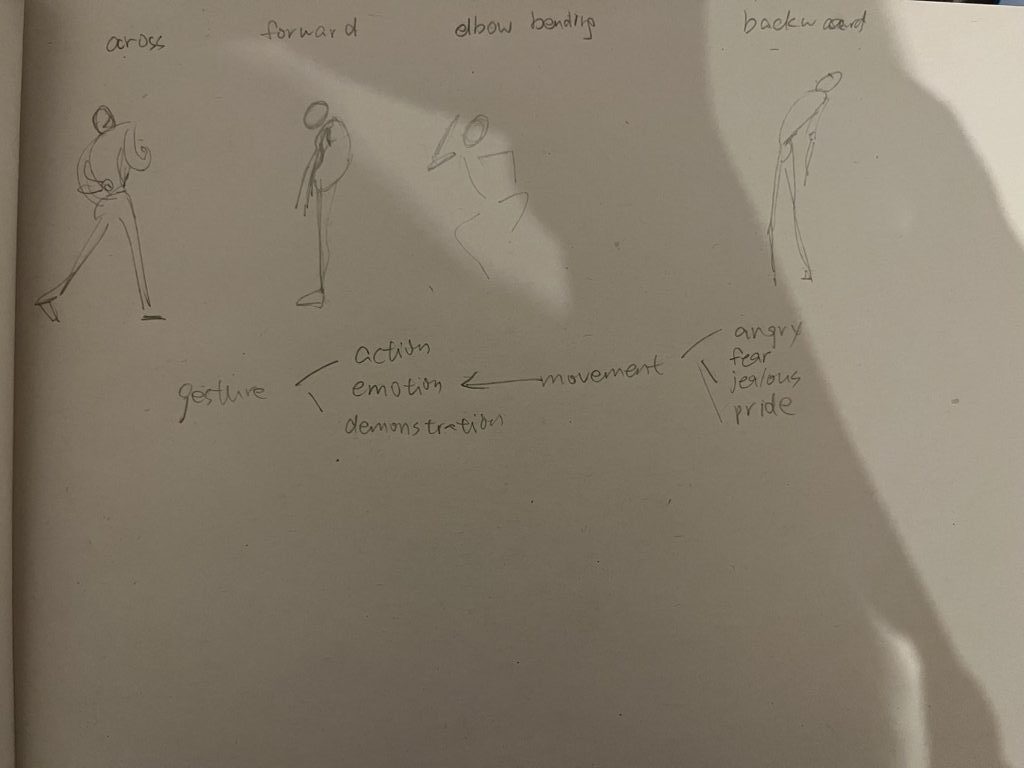 across
forward
elbow bending
backward
gesture
action
emotion
demonstration
movement
angry
fear
jealous
pride